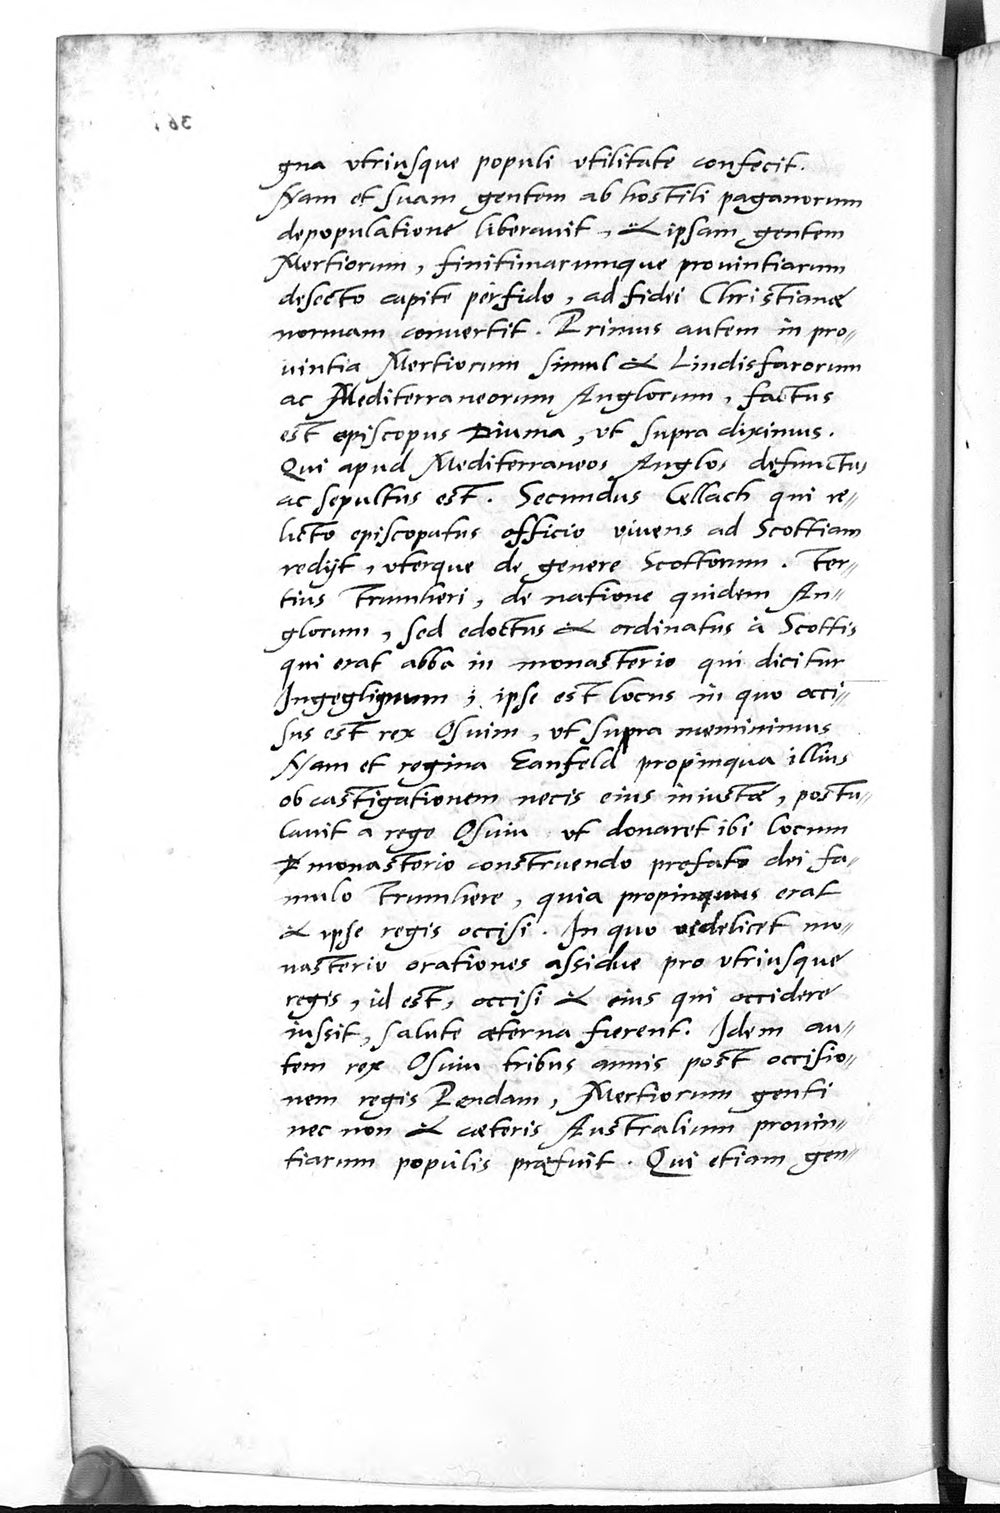 gna vtriusque populi vtilitate confecit.
Nam et suam gentem ab hostili paganorum
depopulatione liberauit, & ipsam gentem
Mertiorum, finitimarumque prouintiarum
desecto capite perfido, ad fidei Christianæ
normam conuertit. Primus autem in pro"
uintia Mertiorum simul & Lindisfarorum
ac Mediterraneorum Anglorum, factus
est episcopus Diuma, vt supra diximus.
Qui apud Mediterraneos Anglos defunctus
ac sepultus est. Secundus Cellach qui re"
licto episcopatus officio viuens ad Scottiam
redijt, vterque de genere Scottorum. Ter"
tius Trumheri, de natione quidem An"
glorum, sed edoctus & ordinatus à Scottis
qui erat abba in monasterio qui dicitur
Ingeglignum; ipse est locus in quo occi"
sus est rex Osuim, vt supra meminimus
Nam et regina Eanfeld propinqua illius
ob castigationem necis eius iniustæ, postu"
lauit a rege Osuiu vt donaret ibi locum
monasterio construendo prefato dei fa"
mulo Trumhere, quia propinquus erat
& ipse regis occisi. In quo videlicet mo"
nasterio orationes assidue pro vtriusque
regis, id est, occisi & eius qui occidere
iussit, salute æterna fierent. Idem au"
tem rex Osuiu tribus annis post occisio"
nem regis Pendam, Mertiorum genti
nec non & cæteris Australium prouin"
tiarum populis præfuit. Qui etiam gen"